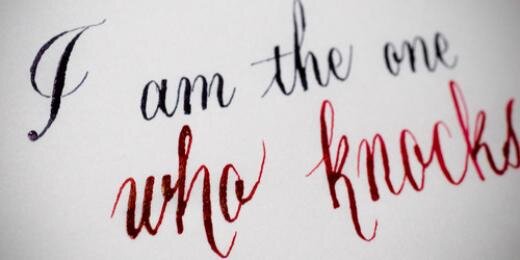 I am the one
who knocks